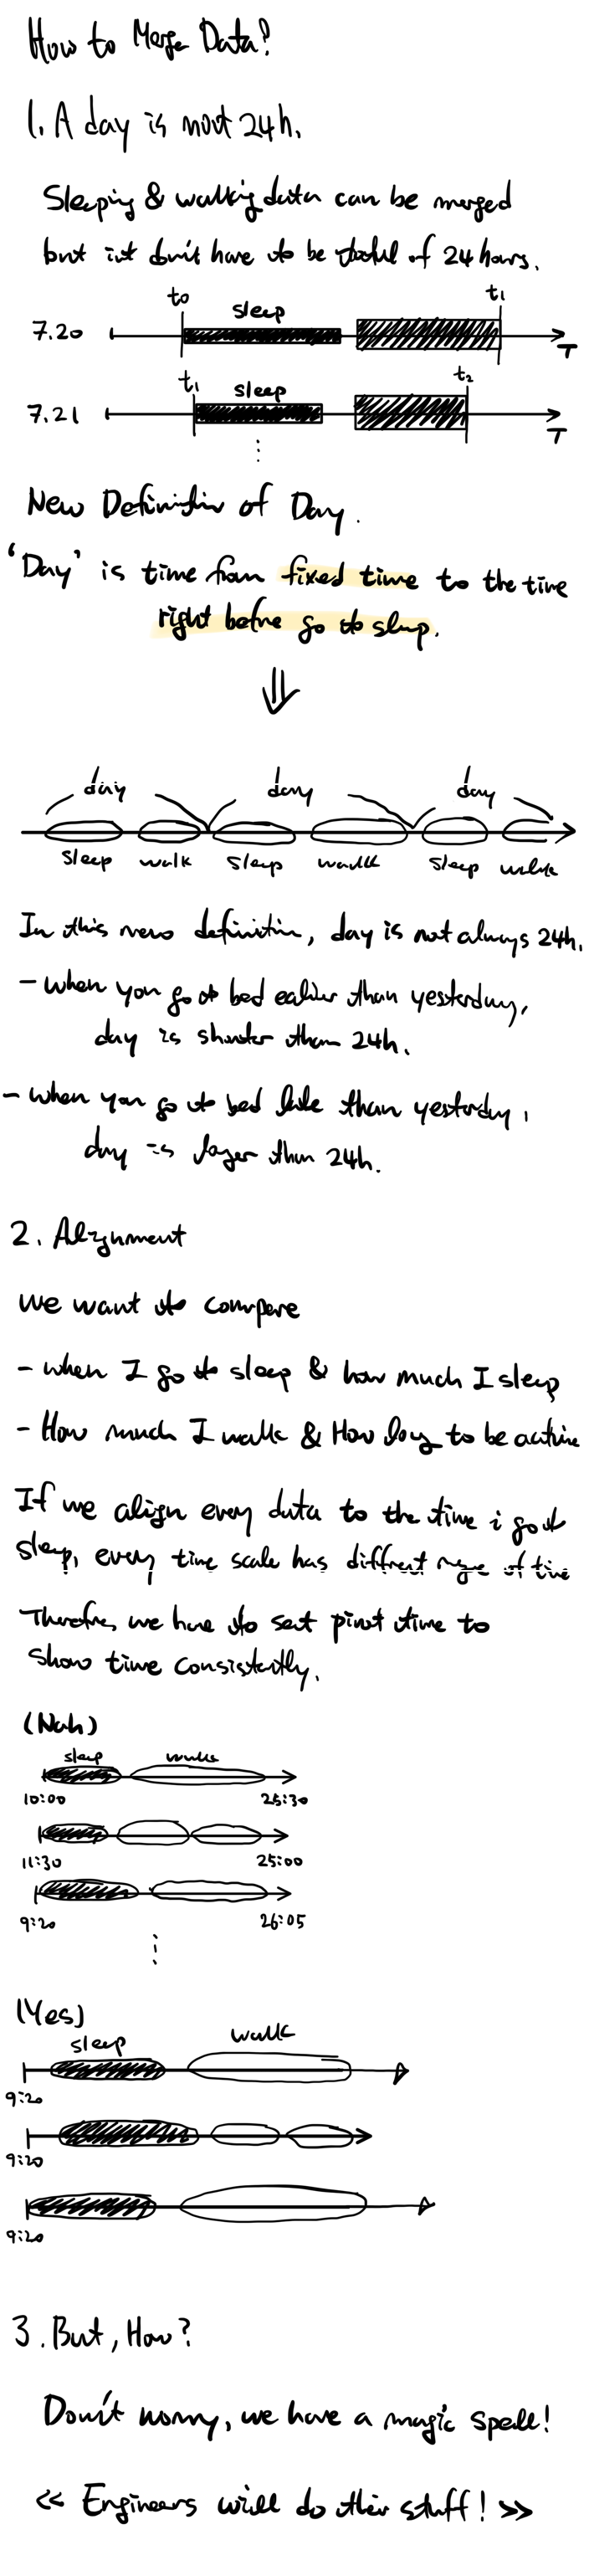 How to Merge Data?
1. A day is not 24h.
Sleeping & walking data can be merged
but it don't have to be total of 24 hours.
t0 sleep t1
7.20 T
t1 sleep t2
7.21 T
New Definition of Day.
'Day' is time from fixed time to the time
right before go to sleep.
day day day
sleep walk sleep walk sleep walk
In this new definition, day is not always 24h.
- when you go to bed ealier than yesterday,
day is shorter than 24h.
- when you go to bed late than yesterday,
day is larger than 24h.
2. Alignment
we want to compare
- when I go to sleep & how much I sleep
- How much I walk & How long to be active
If we align every data to the time i go to
sleep, every time scale has diffrent range of time
Therefore, we have to set pivot time to
show time consistently.
(Nah)
sleep walk
10:00 25:30
11:30 25:00
9:20 26:05
(Yes)
sleep walk
9:20
9:20
9:20
3. But, How?
Don't worry, we have a magic spell!
<< Engineers will do their stuff! >>